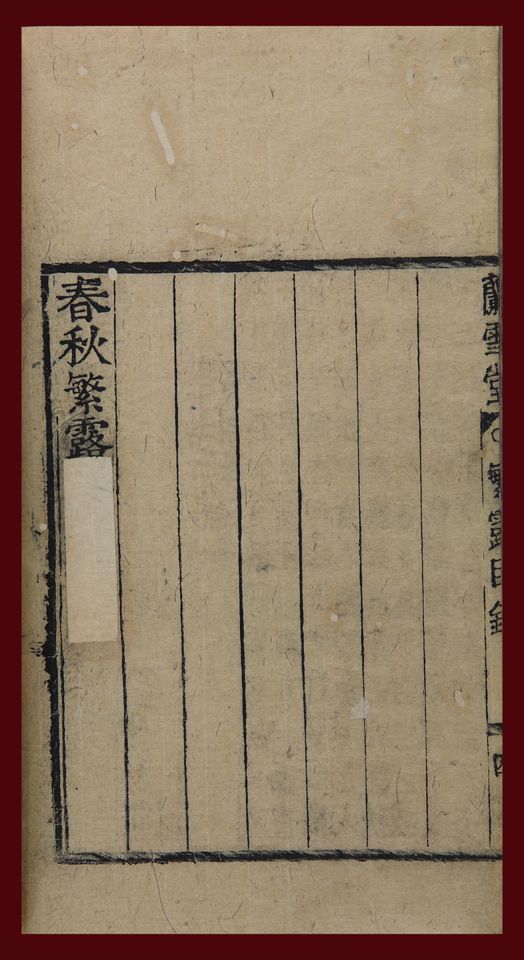 蘭雪堂
繁露目錄
四
春秋繁露